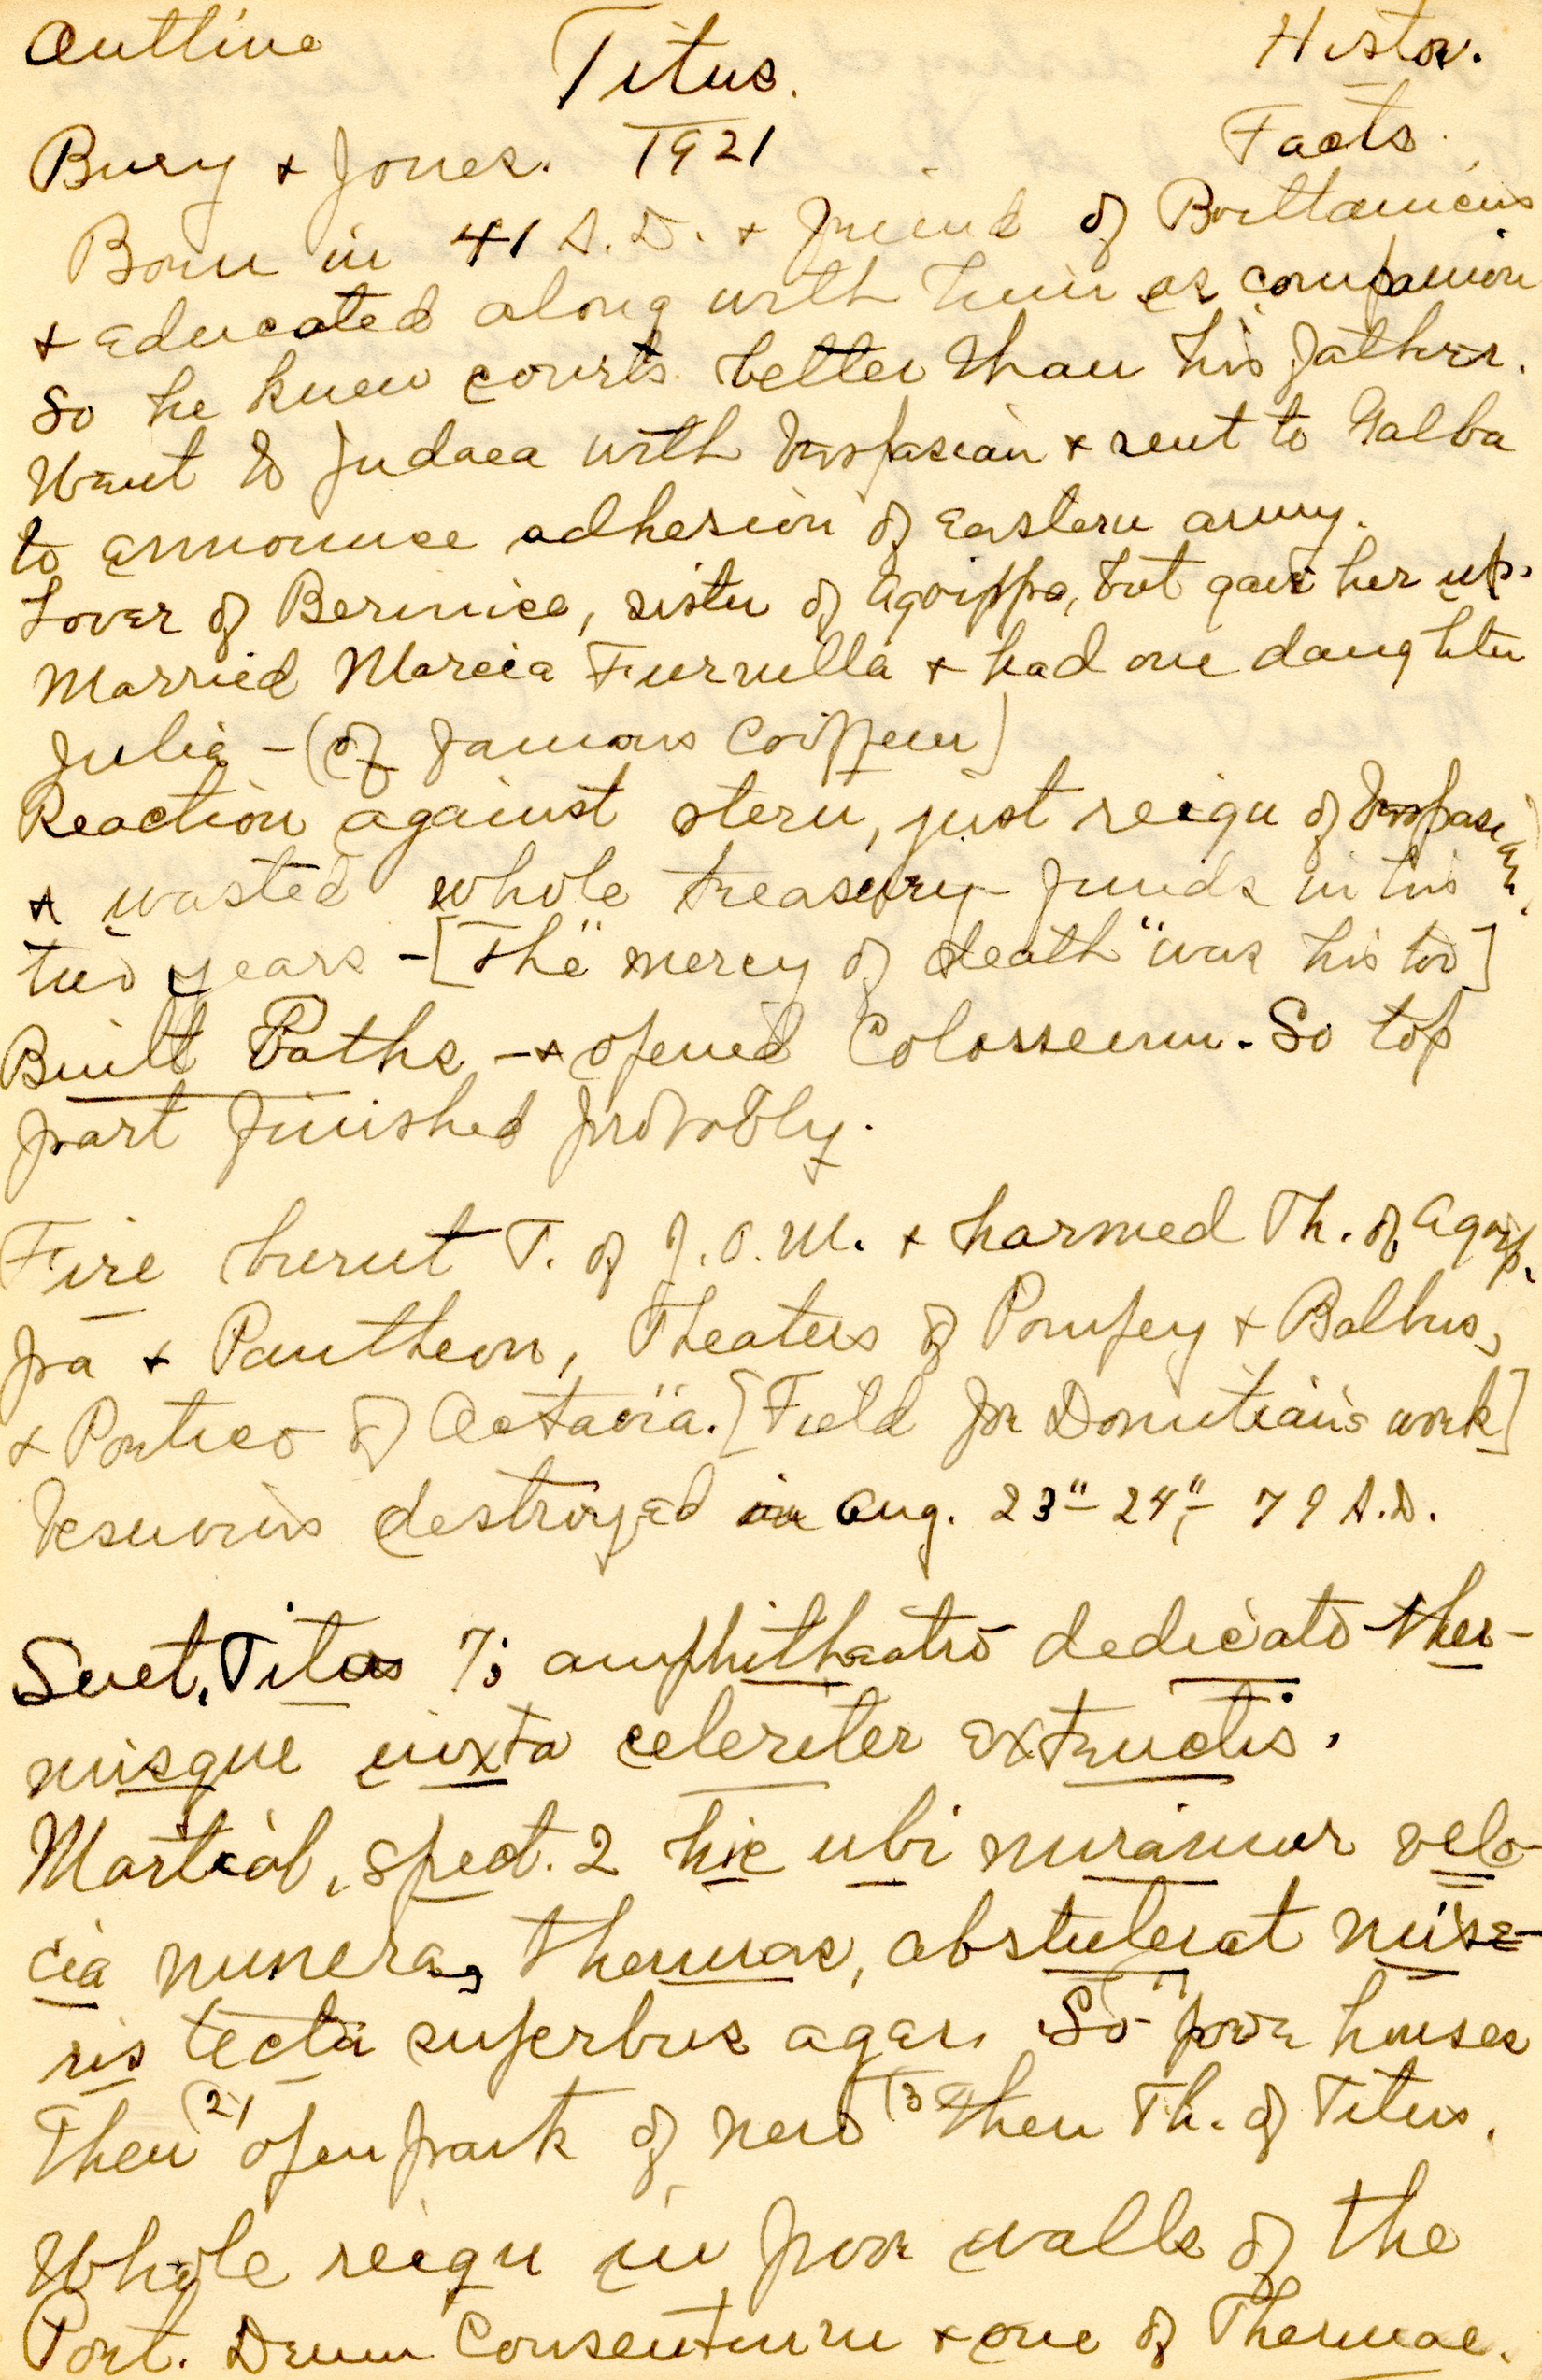 Outline Titus. Histor.
Bury + Jones. 1921 Facts.
Born in 41 A.D. + friend of Brittanicus
+ educated along with him as companion
So he knew courts better than his father.
Went to Judaea with Vespasian + sent to Galba
to announce adhesion of Eastern army.
Lover of Bernice, sister of Agrippa, but gave her up.
Married Marcia Furnilla + had one daughter
Julia - (of famous Coiffeur)
Reaction against stern, just reign of Vespasian,
+ wasted whole treasury funds in his
two years - [The "mercy of death" was his too]
Built Baths - + opened Colosseum. So top
part finished probably.
Fire burnt T. of J.O.M. + harmed Th. of Agrip-
pa + Pantheon, Theaters of Pompey + Balbus,
+ Portico of Octavia. [Field for Domitian's work]
Vesuvius destroyed Aug. 23"- 24", 79 A.D.
Suet. Titus 7; amphitheatro dedicato ther-
misque iuxta celeriter extructis.
Martial, Spect. 2 hic ubi miramur velo-
cia munera, thermas, abstulerat mise-
ris tecta superbus ager. So (1) poor houses
Then (2) open park of Nero (3 then Th. of Titus.
Whole reign in poor walls of the
Port. Deum Consentium + one of Thermae.